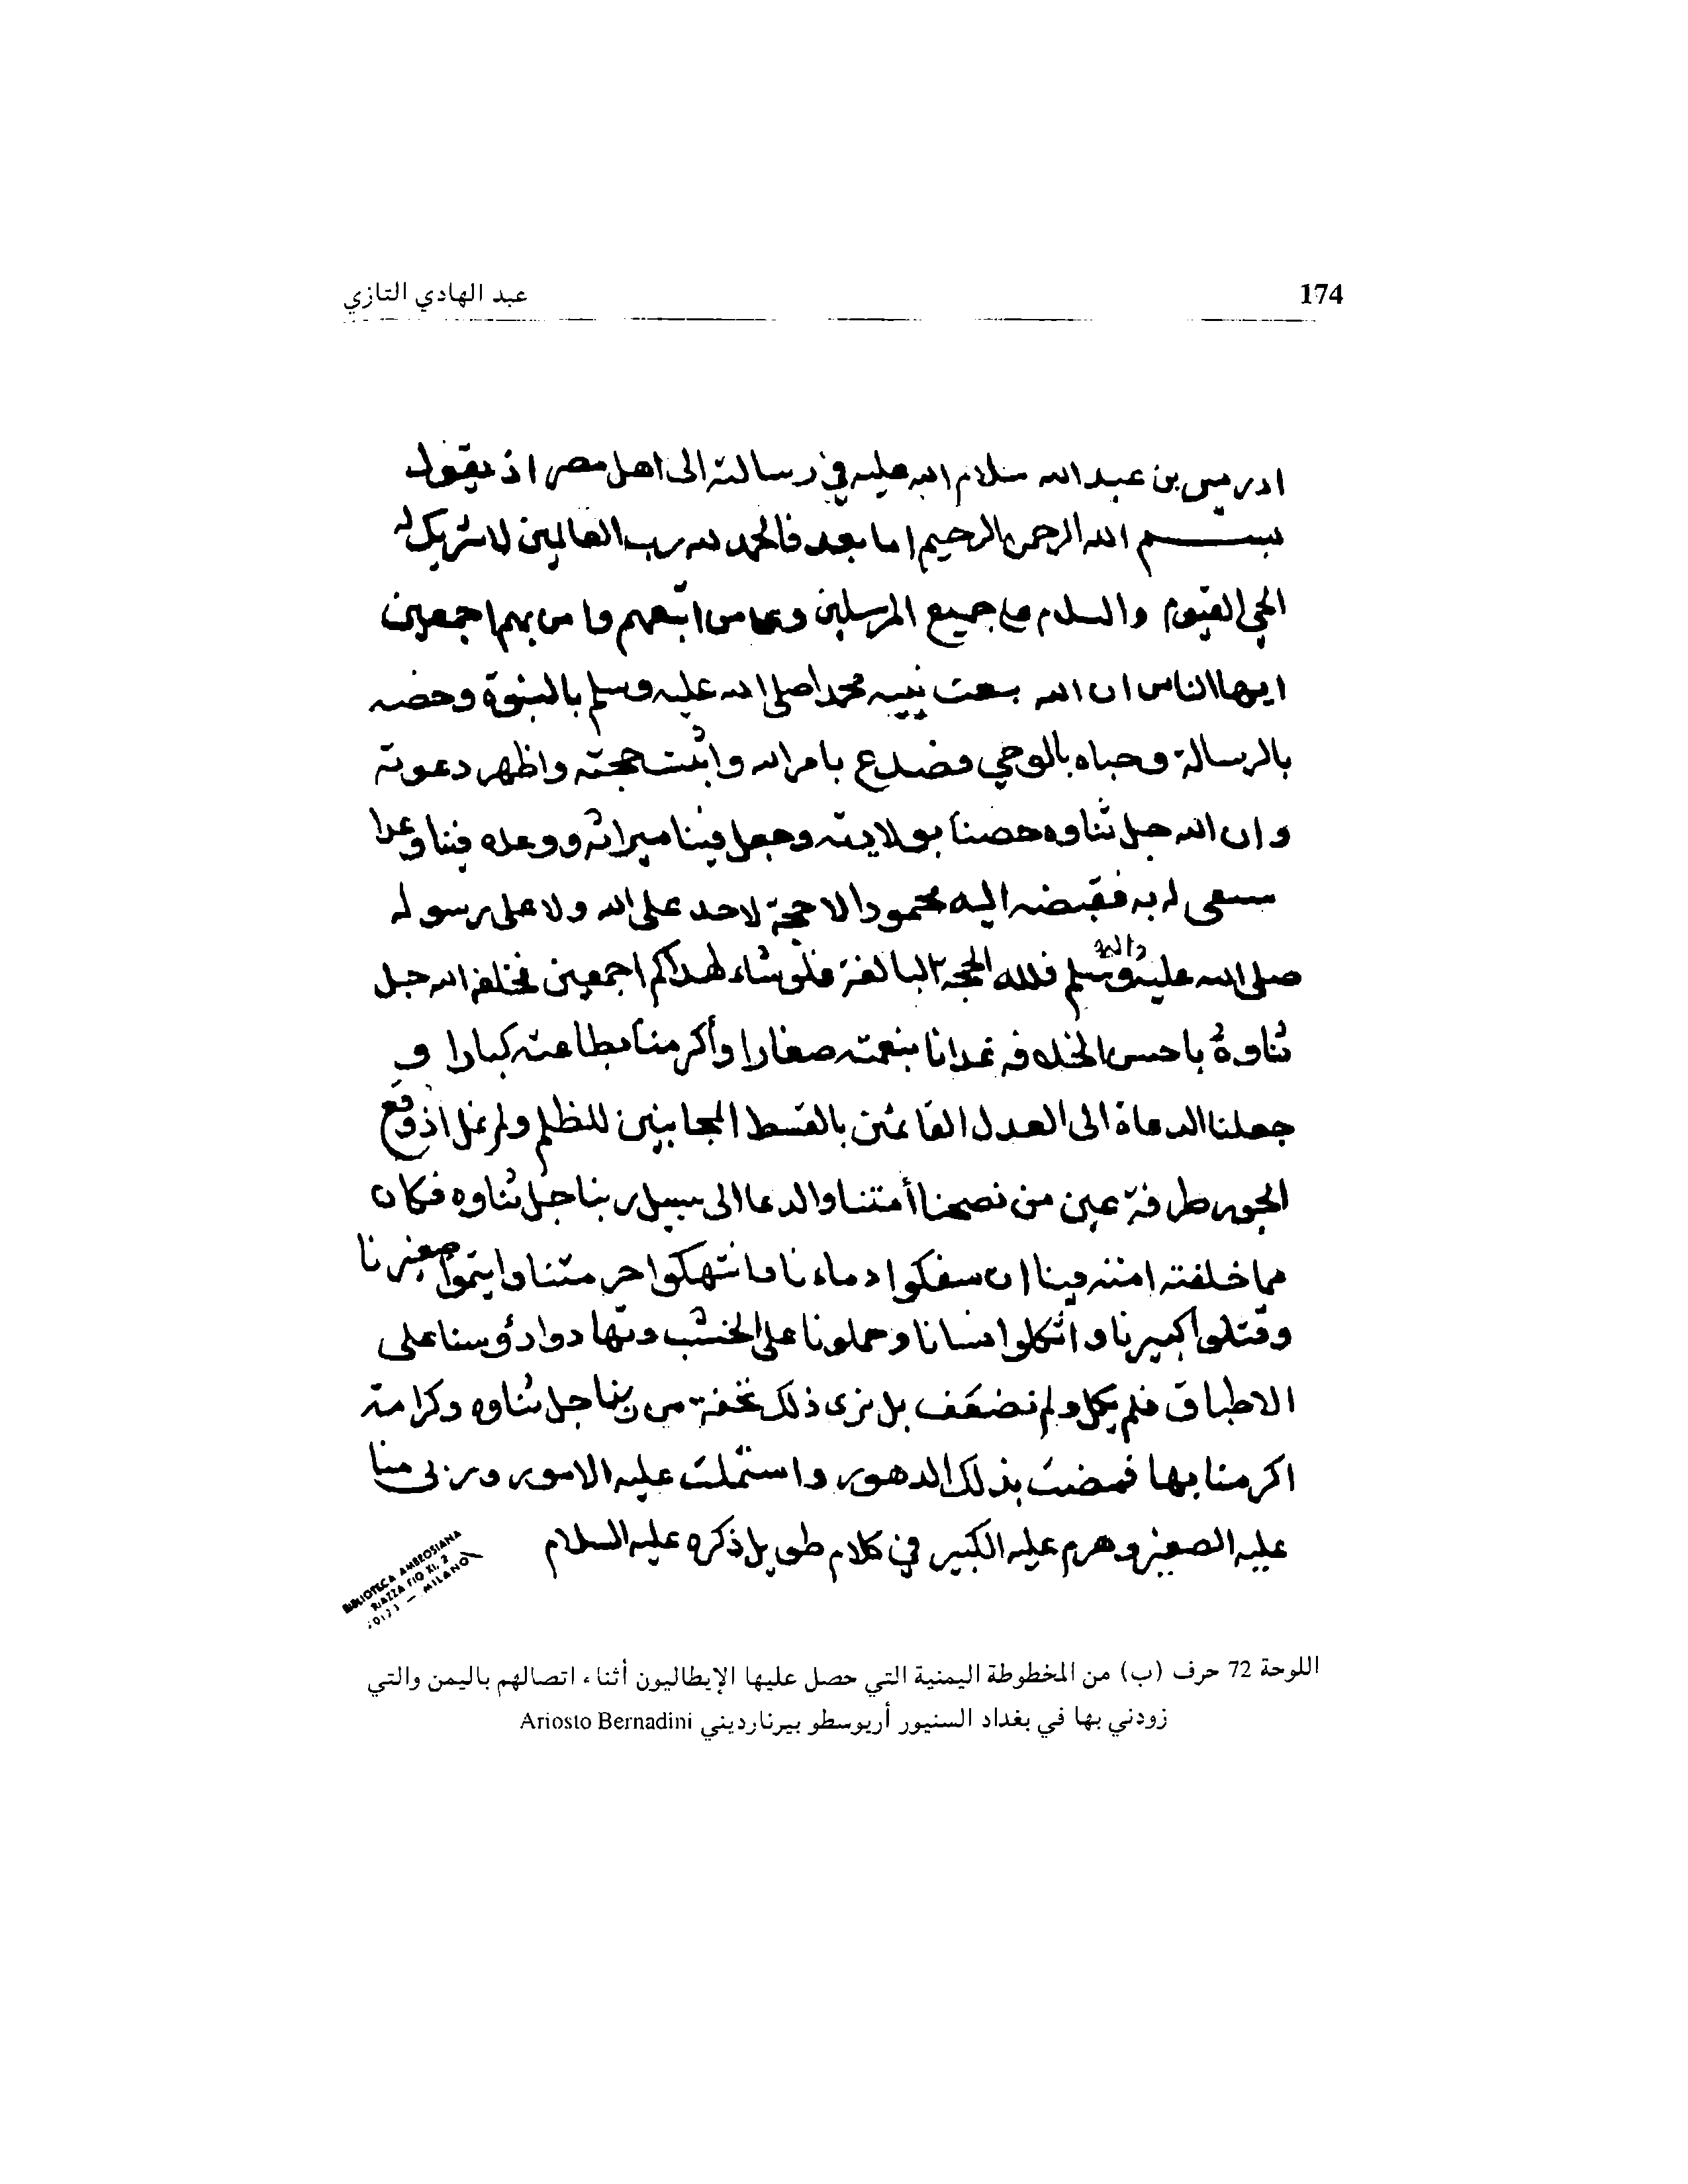 174
عبد الهادي التازي
ادريس بن عبد الله سلام الله عليه في رسالته الى اهل مصر اذ يقول
بسم الله الرحمن الرحيم اما بعد فالحمد لله رب العالمين لا شريك له
الحي القيوم والسلام على جميع المرسلين وعلى من اتبعهم وامن بهم اجمعين
ايها الناس ان الله بعث نبيه محمدا صلى الله عليه وسلم بالنبوة وخصه
بالرسالة وحباه بالوحي فصدع بامر الله واثبت حجته واظهر دعوته
وان الله جل ثناوه خصنا بولايته وجعل فينا ميراثه ووعده فينا وعدا
سعى له به فقبضه اليه محمودا لا حجة لاحد على الله ولا على رسوله
صلى الله عليه واله وسلم فلله الحجة البالغة فلو شاء لهداكم اجمعين فخلفه الله جل
ثناوه باحسن الخلافه غدانا بنعمته صغارا وأكرمنا بطاعته كبارا و
جعلنا الدعاة الى العدل القائمين بالقسط المجانبين للظلم ولم نمل اذ وقع
الجور طرفة عين من نصحنا أمتنا والدعا الى سبيل ربنا جل ثناوه فكان
مما خلفته امته فينا ان سفكوا دماءنا وانتهكوا حرمتنا وايتموا صغيرنا
وقتلوا كبيرنا واثكلوا نسانا وحملونا على الخشب وتهادوا رؤسنا على
الاطباق فلم نكل ولم نضعف بل نرى ذلك تحفة من ربنا جل ثناوه وكرامة
اكرمنا بها فمضت بذلك الدهور واشتملت عليه الامور وربى منا
عليه الصغير وهرم عليه الكبير في كلام طويل ذكره عليه السلام
BIBLIOTECA AMBROSIANA
PIAZZA PIO XI, 2
MILANO
اللوحة 72 حرف (ب) من المخطوطة اليمنية التي حصل عليها الإيطاليون أثناء اتصالهم باليمن والتي
زودني بها في بغداد السنيور أريوسطو بيرنارديني Ariosto Bernadini